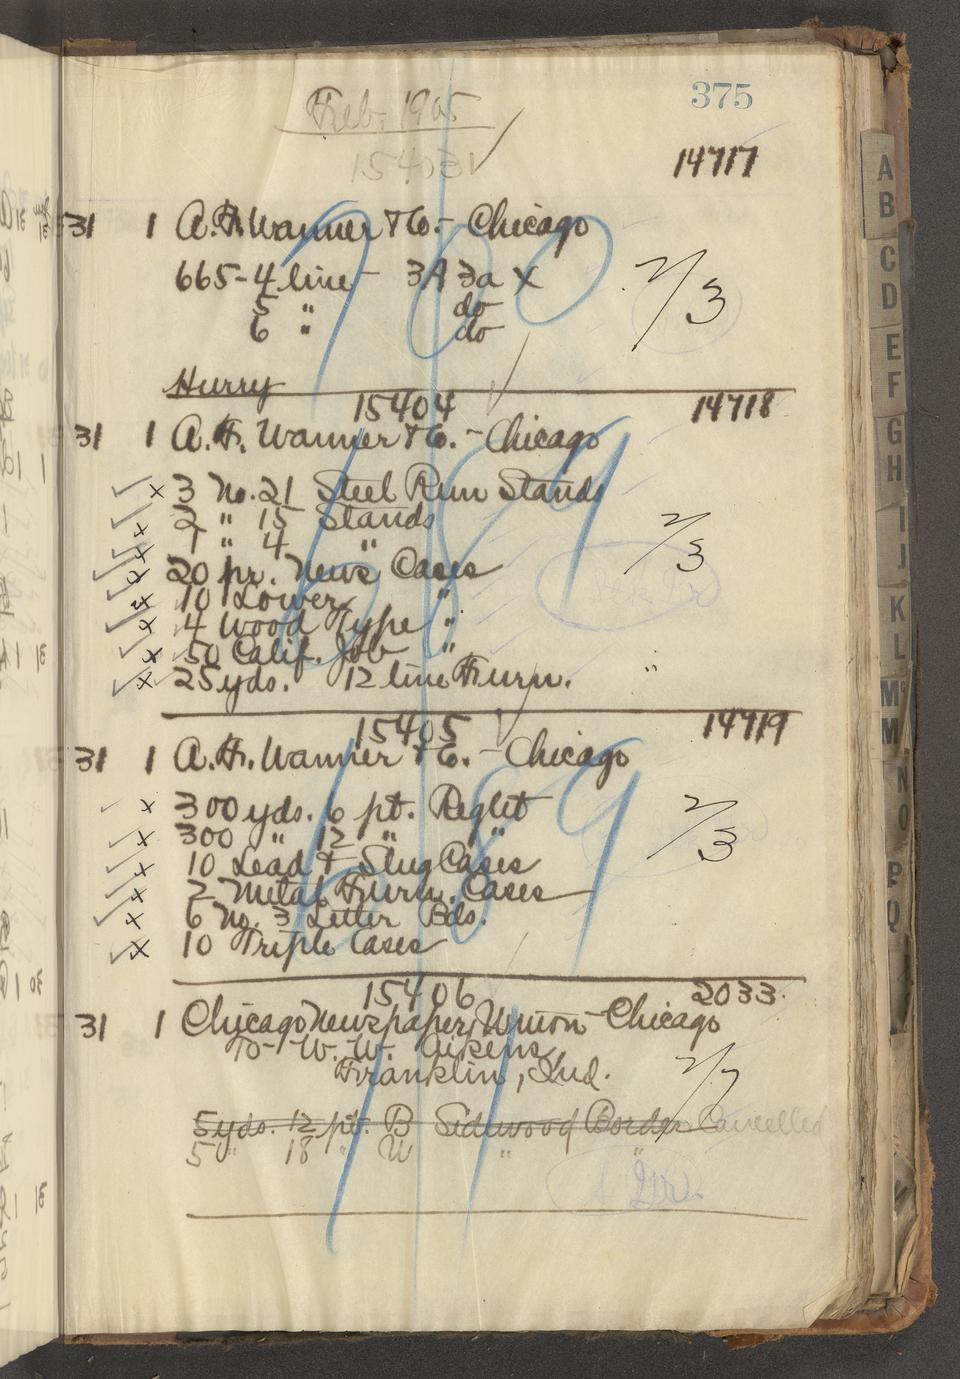 375
Feb. 1905
15403
14717
31 1 A. H. Wanner & Co. - Chicago
665 - 4 line - 3A 3a X
5 " do
6 " do
2/3
Hurry
15404 14718
31 1 A. H. Wanner & Co. - Chicago
x 3 No. 21 Steel Run Stands
x 2 " 15 Stands
x 1 " 4 "
2/3
x 20 pr. News Cases
x 10 Lower "
x 4 Wood Type "
x 50 Calif. Job "
x 25 yds. 12 line Furn. "
15405 14719
31 1 A. H. Wanner & Co. - Chicago
x 300 yds. 6 pt. Reglet
x 300 " 12 " "
2/3
x 10 Lead & Slug Cases
x 2 Metal Furn. Cases
x 6 No. 3 Letter Bds.
x 10 Triple Cases
15406 2033
31 1 Chicago Newspaper Union - Chicago
To - W. W. Aikens
Franklin, Ind.
2/7
5 yds. 12 pt. B Sidewood Border Cancelled
5 " 18 " W " "
A
B
C
D
E
F
G
H
I
J
K
L
M
M
N
O
P
Q